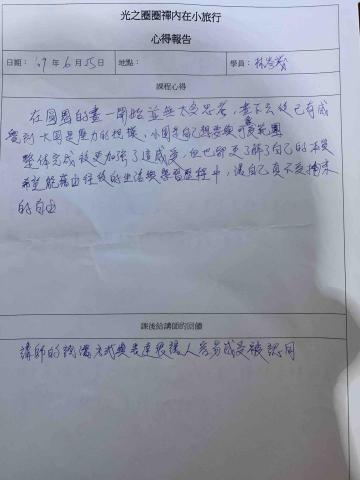 光之圈圈禪內在小旅行
心得報告
日期：'19年6月25日 地點： 學員：
課程心得
在圓圈的畫一開始並無太多思考，畫下去後已有感
受到大圓是壓力的框架，小圓是自己想要與可愛範圍
整体完成後更加強了這感受，但也卻更了解了自己的本質
希望能藉由往後的生活與學習歷程中，讓自己真不受拘束
的自由
課後給講師的回饋
講師的授課方式與表達很讓人容易感受被認同